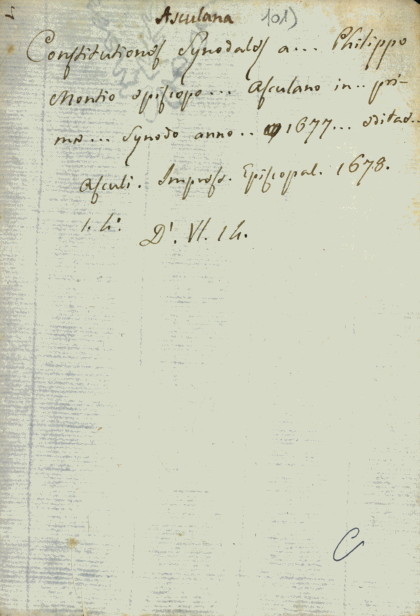 Asculana 101)
Constitutiones Synodales a... Philippo
Montio episcopo... Asculano in.. pri-
ma... Synodo anno.. 1677... editae..
Asculi. Impress. Episcopal. 1678.
1. 4°.
D'. VI. 14.
C